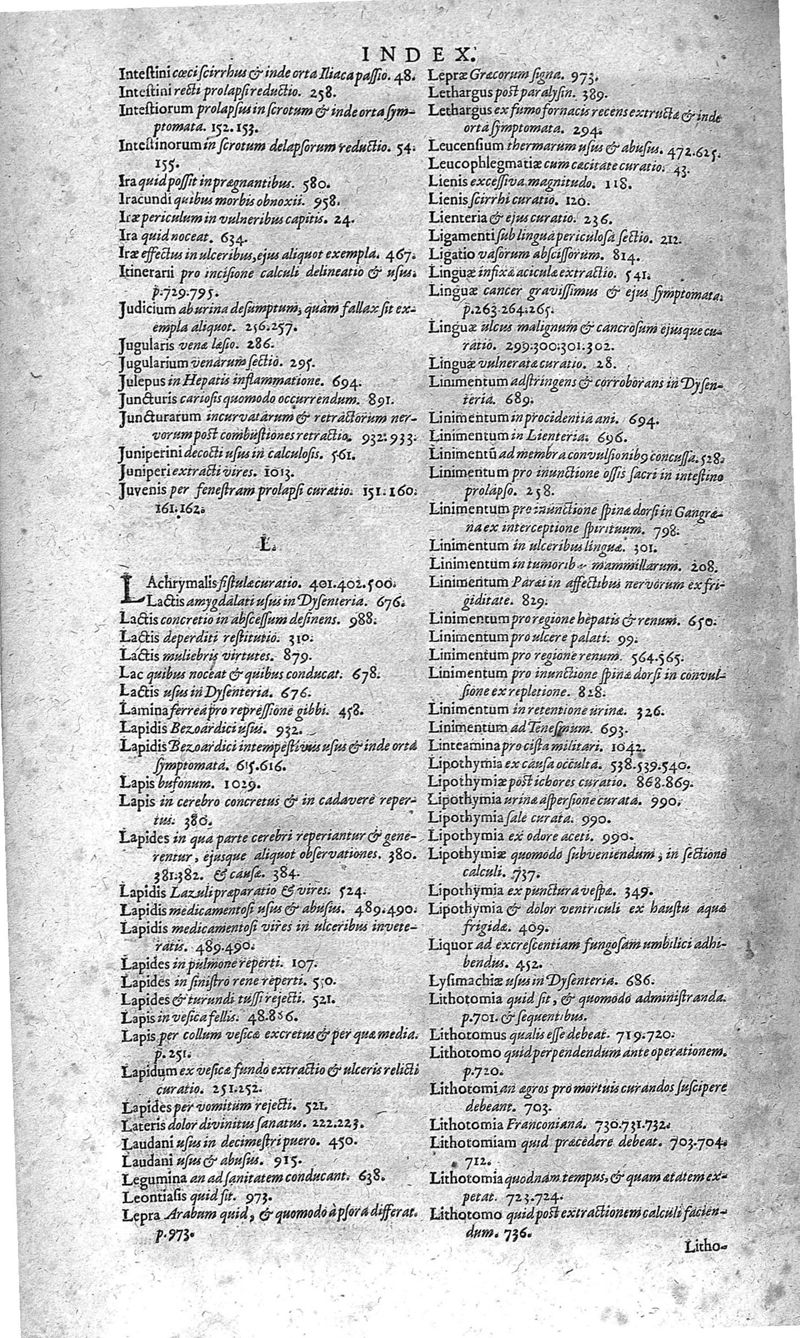 INDEX.
Intestini cœci scirrhus & inde orta Iliaca passio. 48.
Intestini recti prolapsi reductio. 258.
Intestiorum prolapsus in scrotum & inde orta sym-
ptomata. 152.153.
Intestinorum in scrotum delapsorum reductio. 54.
155.
Ira quid possit in prægnantibus. 580.
Iracundi quibus morbis obnoxii. 958.
Iræ periculum in vulneribus capitis. 24.
Ira quid noceat. 634.
Iræ effectus in ulceribus, ejus aliquot exempla. 467.
Itinerarii pro incisione calculi delineatio & usus.
p.729.795.
Judicium ab urina desumptum, quàm fallax sit ex-
empla aliquot. 256.257.
Jugularis venæ læsio. 286.
Jugularium venarum sectio. 295.
Julepus in Hepatis inflammatione. 694.
Juncturis cariosis quomodo occurrendum. 891.
Juncturarum incurvatarum & retractorum ner-
vorum post combustiones retractio. 932.933.
Juniperini decocti usus in calculosis. 561.
Juniperi extracti vires. 1013.
Juvenis per fenestram prolapsi curatio. 151.160.
161.162.
L.
LAchrymalis fistulæ curatio. 401.402.500.
Lactis amygdalati usus in Dysenteria. 676.
Lactis concretio in abscessum desinens. 988.
Lactis deperditi restitutio. 310.
Lactis muliebris virtutes. 879.
Lac quibus noceat & quibus conducat. 678.
Lactis usus in Dysenteria. 676.
Lamina ferrea pro repressione gibbi. 458.
Lapidis Bezoardici usus. 932.
Lapidis Bezoardici intempestivus usus & inde orta
symptomata. 615.616.
Lapis bufonum. 1029.
Lapis in cerebro concretus & in cadavere reper-
tus. 380.
Lapides in qua parte cerebri reperiantur & gene-
rentur, ejusque aliquot observationes. 380.
381.382. & causæ. 384.
Lapidis Lazuli præparatio & vires. 524.
Lapidis medicamentosi usus & abusus. 489.490.
Lapidis medicamentosi vires in ulceribus invete-
ratis. 489.490.
Lapides in pulmone reperti. 107.
Lapides in sinistro rene reperti. 570.
Lapides & turundi tussi rejecti. 521.
Lapis in vesica fellis. 48.886.
Lapis per collum vesicæ excretus & per quæ media.
p.251.
Lapidum ex vesicæ fundo extractio & ulceris relicti
curatio. 251.252.
Lapides per vomitum rejecti. 521.
Lateris dolor divinitus sanatus. 222.223.
Laudani usus in decimestri puero. 450.
Laudani usus & abusus. 915.
Legumina an ad sanitatem conducant. 638.
Leontiasis quid sit. 973.
Lepra Arabum quid, & quomodo à psora differat.
p.973.
Lepræ Græcorum signa. 973.
Lethargus post paralysin. 389.
Lethargus ex fumo fornacis recens extructæ & inde
orta symptomata. 294.
Leucensium thermarum usus & abusus. 472.625.
Leucophlegmatiæ cum cæcitate curatio. 43.
Lienis excessiva magnitudo. 118.
Lienis scirrhi curatio. 120.
Lienteria & ejus curatio. 236.
Ligamenti sub lingua periculosa sectio. 212.
Ligatio vasorum abscissorum. 814.
Linguæ infixæ aciculæ extractio. 541.
Linguæ cancer gravissimus & ejus symptomata.
p.263.264.265.
Linguæ ulcus malignum & cancrosum ejusque cu-
ratio. 299.300.301.302.
Linguæ vulneratæ curatio. 28.
Linimentum adstringens & corroborans in Dysen-
teria. 689.
Linimentum in procidentia ani. 694.
Linimentum in Lienteria. 696.
Linimentũ ad membra convulsionib9 concussa. 528.
Linimentum pro inunctione ossis sacri in intestino
prolapso. 258.
Linimentum pro inunctione spinæ dorsi in Gangræ-
na ex interceptione spirituum. 798.
Linimentum in ulceribus linguæ. 301.
Linimentum in tumorib mammillarum. 208.
Linimentum Paræi in affectibus nervorum ex fri-
giditate. 829.
Linimentum pro regione hepatis & renum. 650.
Linimentum pro ulcere palati. 99.
Linimentum pro regione renum. 564.565.
Linimentum pro inunctione spinæ dorsi in convul-
sione ex repletione. 828.
Linimentum in retentione urinæ. 326.
Linimentum ad Tenesmum. 693.
Linteamina pro cista militari. 1042.
Lipothymia ex causa occulta. 538.539.540.
Lipothymiæ post ichores curatio. 868.869.
Lipothymia urinæ aspersione curata. 990.
Lipothymia sale curata. 990.
Lipothymia ex odore aceti. 990.
Lipothymiæ quomodo subveniendum, in sectione
calculi. 737.
Lipothymia ex punctura vespæ. 349.
Lipothymia & dolor ventriculi ex haustu aquæ
frigidæ. 409.
Liquor ad excrescentiam fungosam umbilici adhi-
bendus. 452.
Lysimachiæ usus in Dysenteria. 686.
Lithotomia quid sit, & quomodo administranda.
p.701. & sequentibus.
Lithotomus qualis esse debeat. 719.720.
Lithotomo quid perpendendum ante operationem.
p.720.
Lithotomi an ægros pro mortuis curandos suscipere
debeant. 703.
Lithotomia Franconiana. 730.731.732.
Lithotomiam quid præcedere debeat. 703.704.
712.
Lithotomia quodnam tempus, & quam ætatem ex-
petat. 723.724.
Lithotomo quid post extractionem calculi facien-
dum. 736.
Litho-